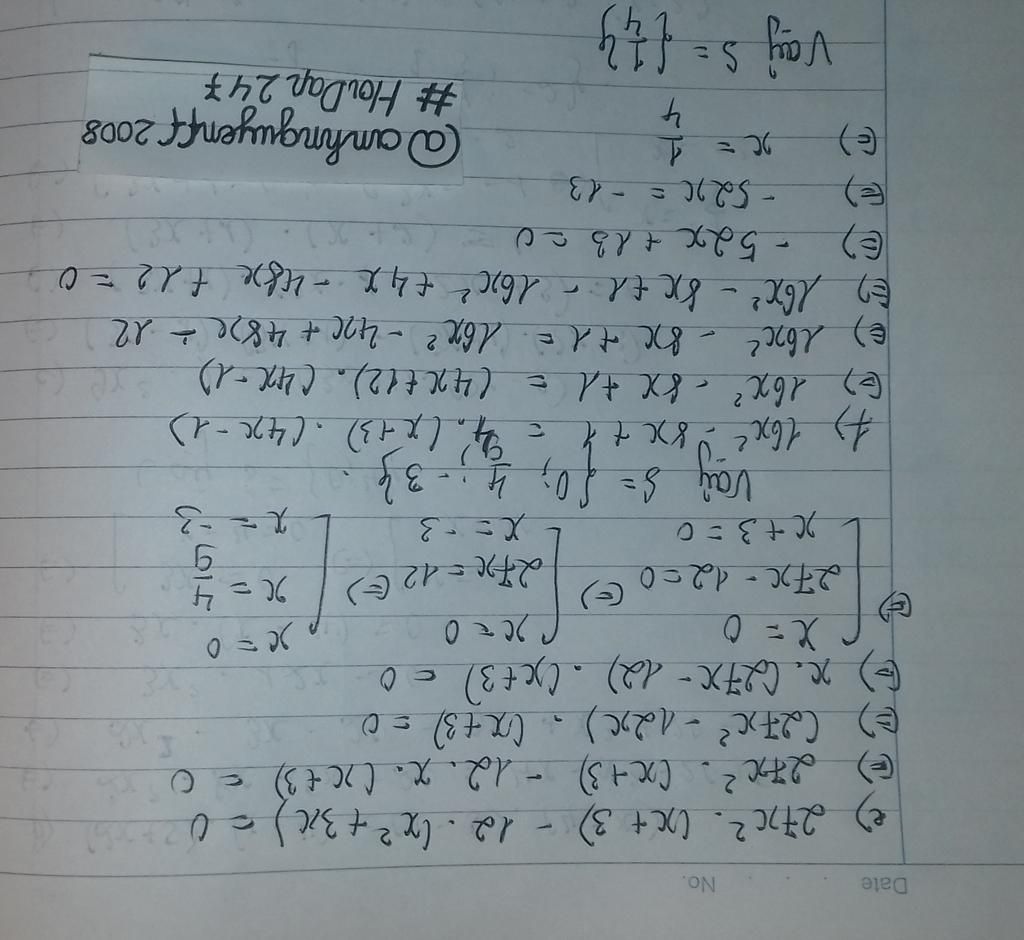 Date . . . No.
e) 27x². (x+3) - 12. (x²+3x) = 0
(=) 27x². (x+3) - 12. x. (x+3) = 0
(=) (27x² - 12x). (x+3) = 0
(=) x. (27x - 12). (x+3) = 0
(=) [ x = 0 [ x = 0 [ x = 0
27x - 12 = 0 (=) 27x = 12 (=) x = 4/9
x + 3 = 0 x = -3 x = -3
Vậy S = {0; 4/9; -3}.
f) 16x² - 8x + 1 = 4. (x+3). (4x-1)
(=) 16x² - 8x + 1 = (4x+12). (4x-1)
(=) 16x² - 8x + 1 = 16x² - 4x + 48x - 12
(=) 16x² - 8x + 1 - 16x² + 4x - 48x + 12 = 0
(=) - 52x + 13 = 0
(=) - 52x = - 13
(=) x = 1/4
@amhnguyenff2008
# HoiDap247
Vậy S = {1/4}